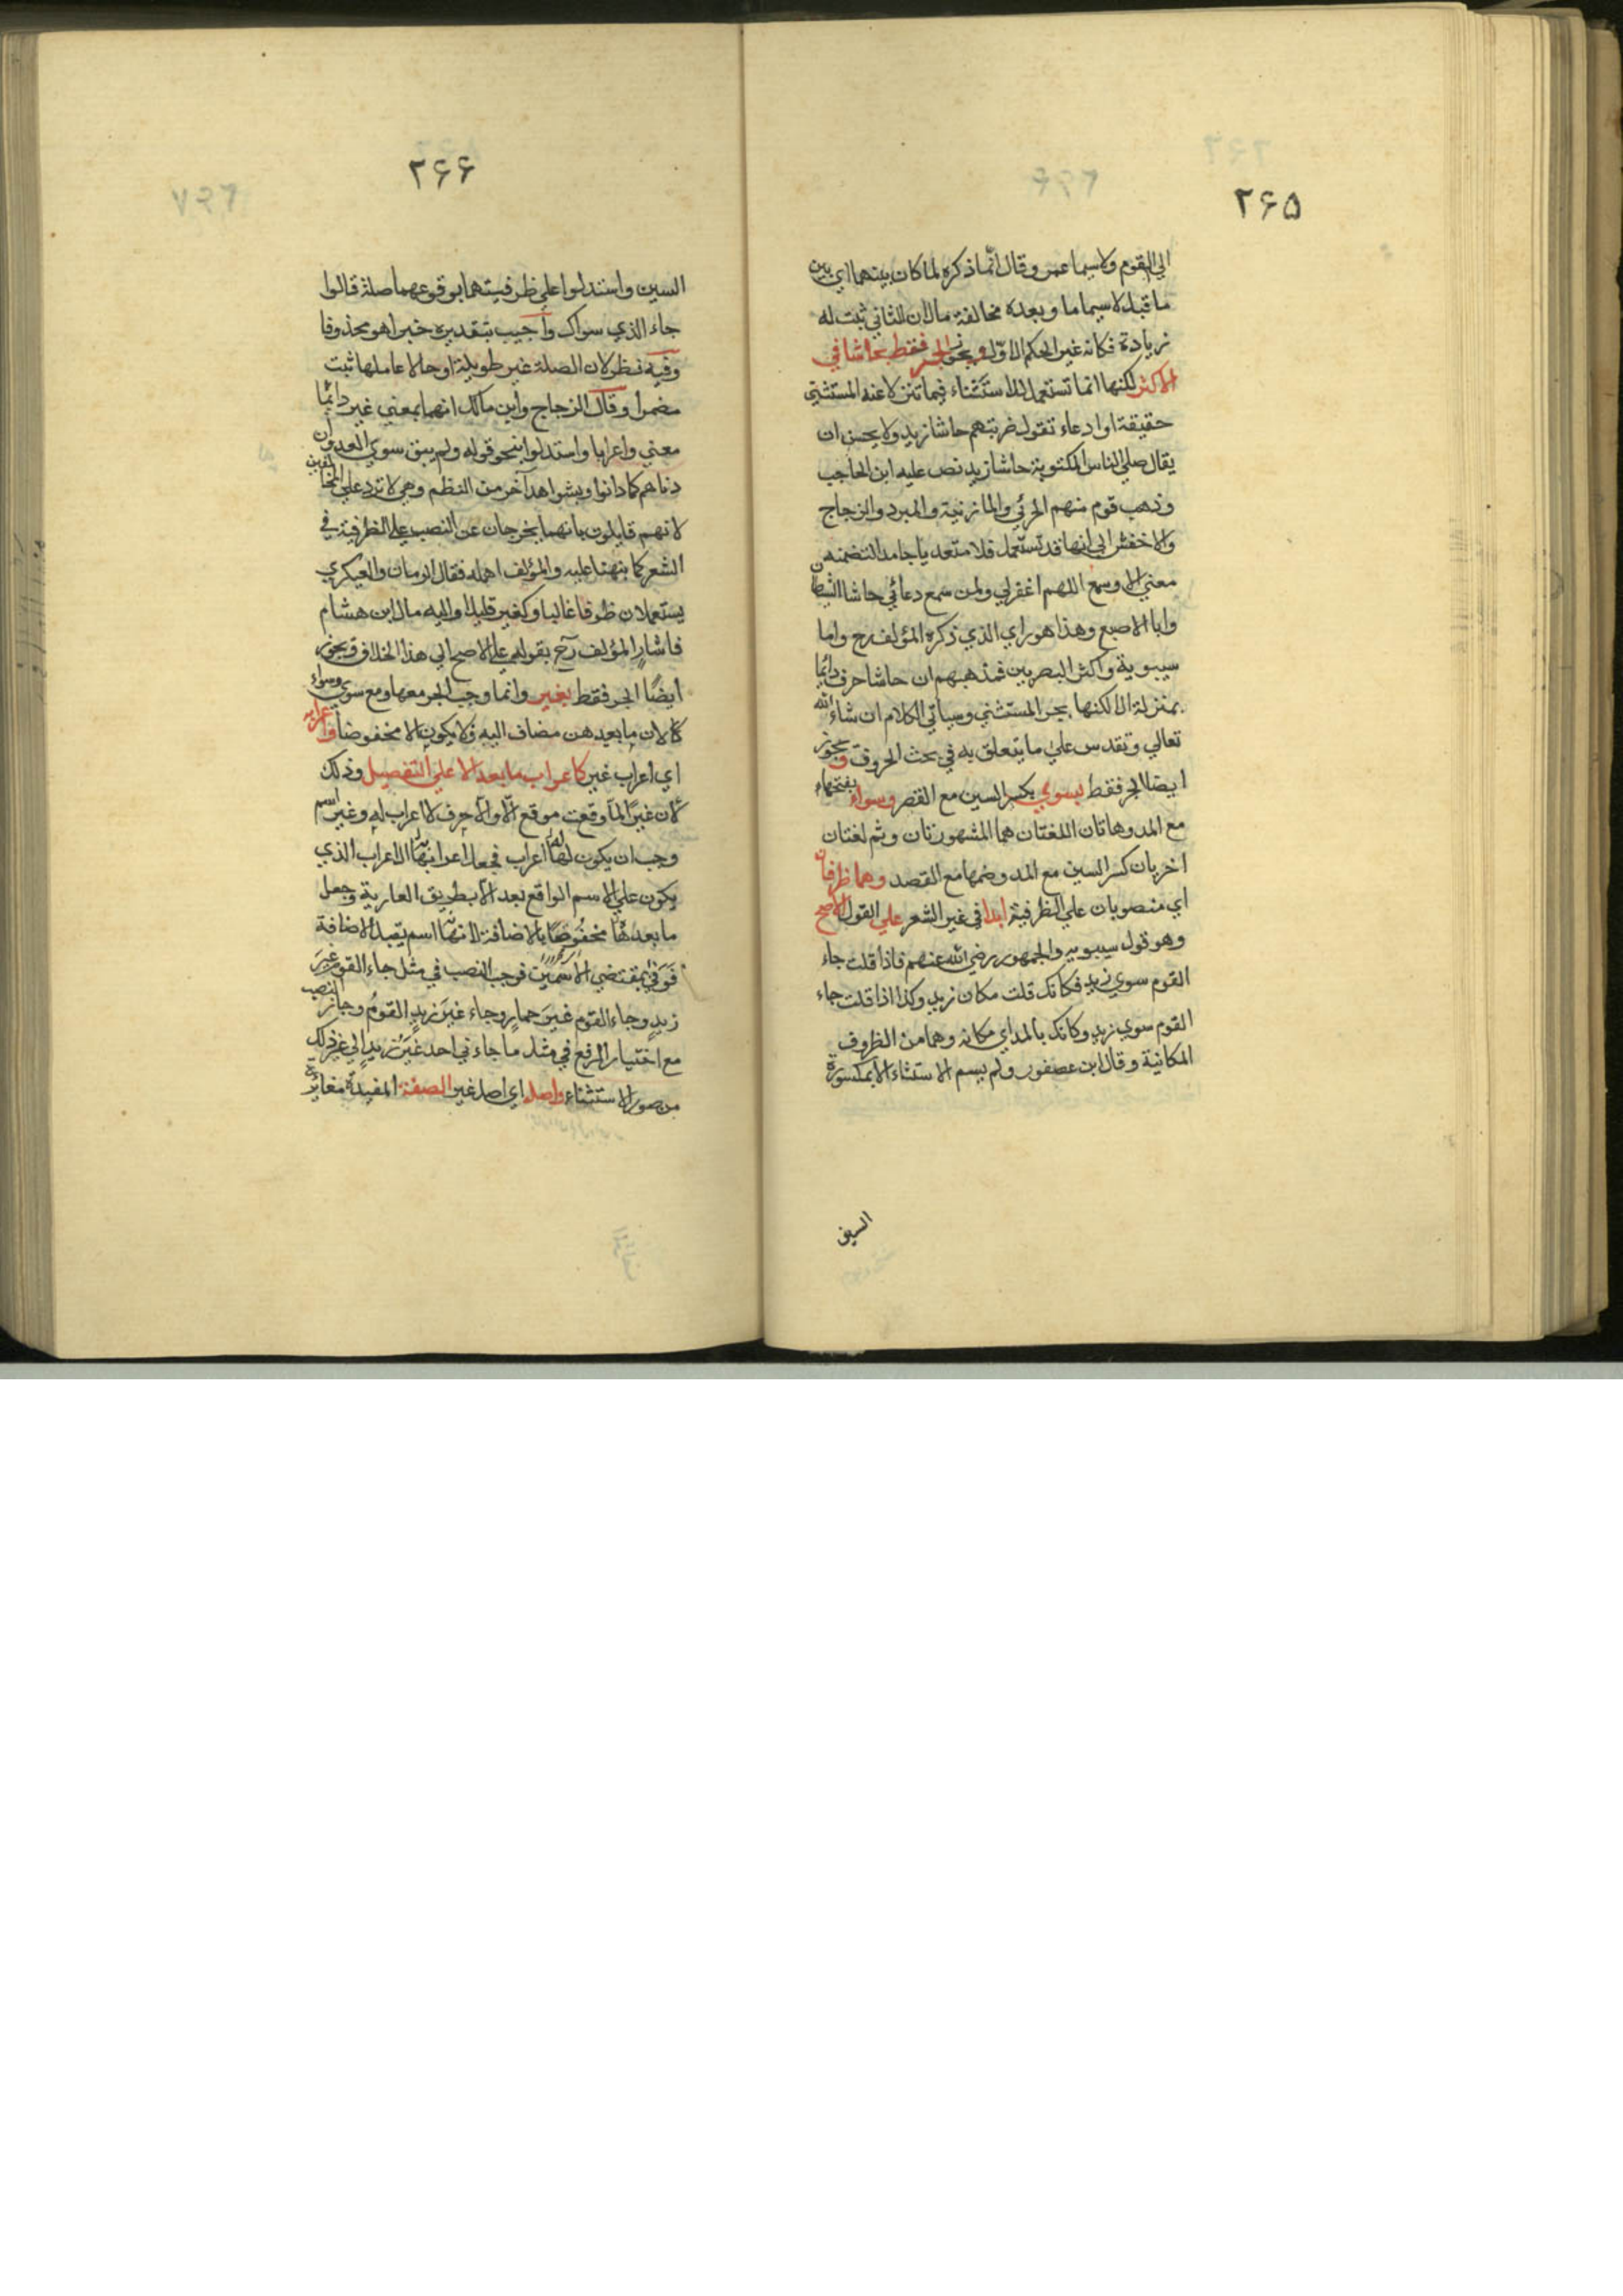 ۲۶۵
الي القوم ولاسيما عمرو وقال انما ذكره لما كان بينهما اي بين
ما قبل لاسيما وبعده مخالفة ما لان الثاني ثبت له
زيادة فكانه غير الحكم الاول ويجوز الجر فقط بحاشا في
الاكثر لكنها انما تستعمل للاستثناء فيما تنزلا عنه المستثني
حقيقة او ادعاء تقول ضربتهم حاشا زيد ولا يحسن ان
يقال صلي الناس المكتوبة حاشا زيد نص عليه ابن الحاجب
وذهب قوم منهم الجرئي والمازنية والمبرد والزجاج
والاخفش الي انها قد تستعمل فلا متعديا جامدا لتضمنه
معني الا وسمع اللهم اغفرلي ولمن سمع دعائي حاشا الشيطان
وابا الاصبع وهذا هو راي الذي ذكره المؤلف رح واما
سيبوية واكثر البصريين فمذهبهم ان حاشا حرف دائما
بمنزلة الا لكنها يجر المستثني وسياتي الكلام ان شاء الله
تعالي وتقدس علي ما يتعلق به في بحث الحروف ويجوز
ايضا الجر فقط بسوي بكسر السين مع القصر وسواء بفتحها
مع المد وهاتان اللغتان هما المشهورتان وثم لغتان
اخريان كسر السين مع المد وضمها مع القصد وهما ظرفان
اي منصوبان علي الظرفية ابدا في غير الشعر علي القول الاصح
وهو قول سيبويه والجمهور رضي الله عنهم فاذا قلت جاء
القوم سوي زيد فكانك قلت مكان زيد وكذا اذا قلت جاء
القوم سوي زيد وكانك بالمد اي مكانه وهما من الظروف
المكانية وقال ابن عصفور ولم يسم الاستثناء الا بمكسورة
السين
۲۶۶
السين واستدلوا علي ظرفيتهما بوقوعهما صلة قالوا
جاء الذي سواك واجيب بتقديره خبرا هو محذوفا
وفيه نظر لان الصلة غير طويلة او حالا عاملها ثبت
مضمرا وقال الزجاج وابن مالك انهما بمعني غير دائما
معني واعرابا واستدلوا بنحو قوله ولم يبق سوي العدوان
دناهم كما دانوا وبشواهد آخر من النظم وهي لا ترد علي المخالفين
لانهم قايلون بانهما يخرجان عن النصب علي الظرفية في
الشعر كما نبهنا عليه والمؤلف اهمله فقال الرمان والعيكري
يستعملان ظرفا غالبا وكغير قليلا واليه مال ابن هشام
فاشار المؤلف رح بقوله علي الاصح الي هذا الخلاف ويجوز
ايضًا الجر فقط بغير وانما وجب الجر معها ومع سوي وسواء
كالان ما بعدهن مضاف اليه ولا يكون الا مخفوضا واعرابه
اي اعراب غير كاعراب ما بعد الا علي التفصيل وذلك
لان غيرًا لما وقعت موقع الّا والا حرف لا اعراب له وغير اسم
وجب ان يكون لها اعراب فجعل اعرابها الاعراب الذي
يكون علي الاسم الواقع بعد الا بطريق العارية وجعل
ما بعدها مخفوضًا بالاضافة لانها اسم يقبل الاضافة
فَوَفي بمقتضي الاسمين فوجب النصب في مثل جاء القوم غيرَ
زيدٍ وجاء القوم غيرَ حمارٍ وجاء غيرَ زيدٍ القومُ وجاز النصب
مع اختيار الرفع في مثل ما جاءني احد غيرُ زيدٍ الي غير ذلك
من صور الاستثناء واصله اي اصل غير الصفة المفيدة مغائرة